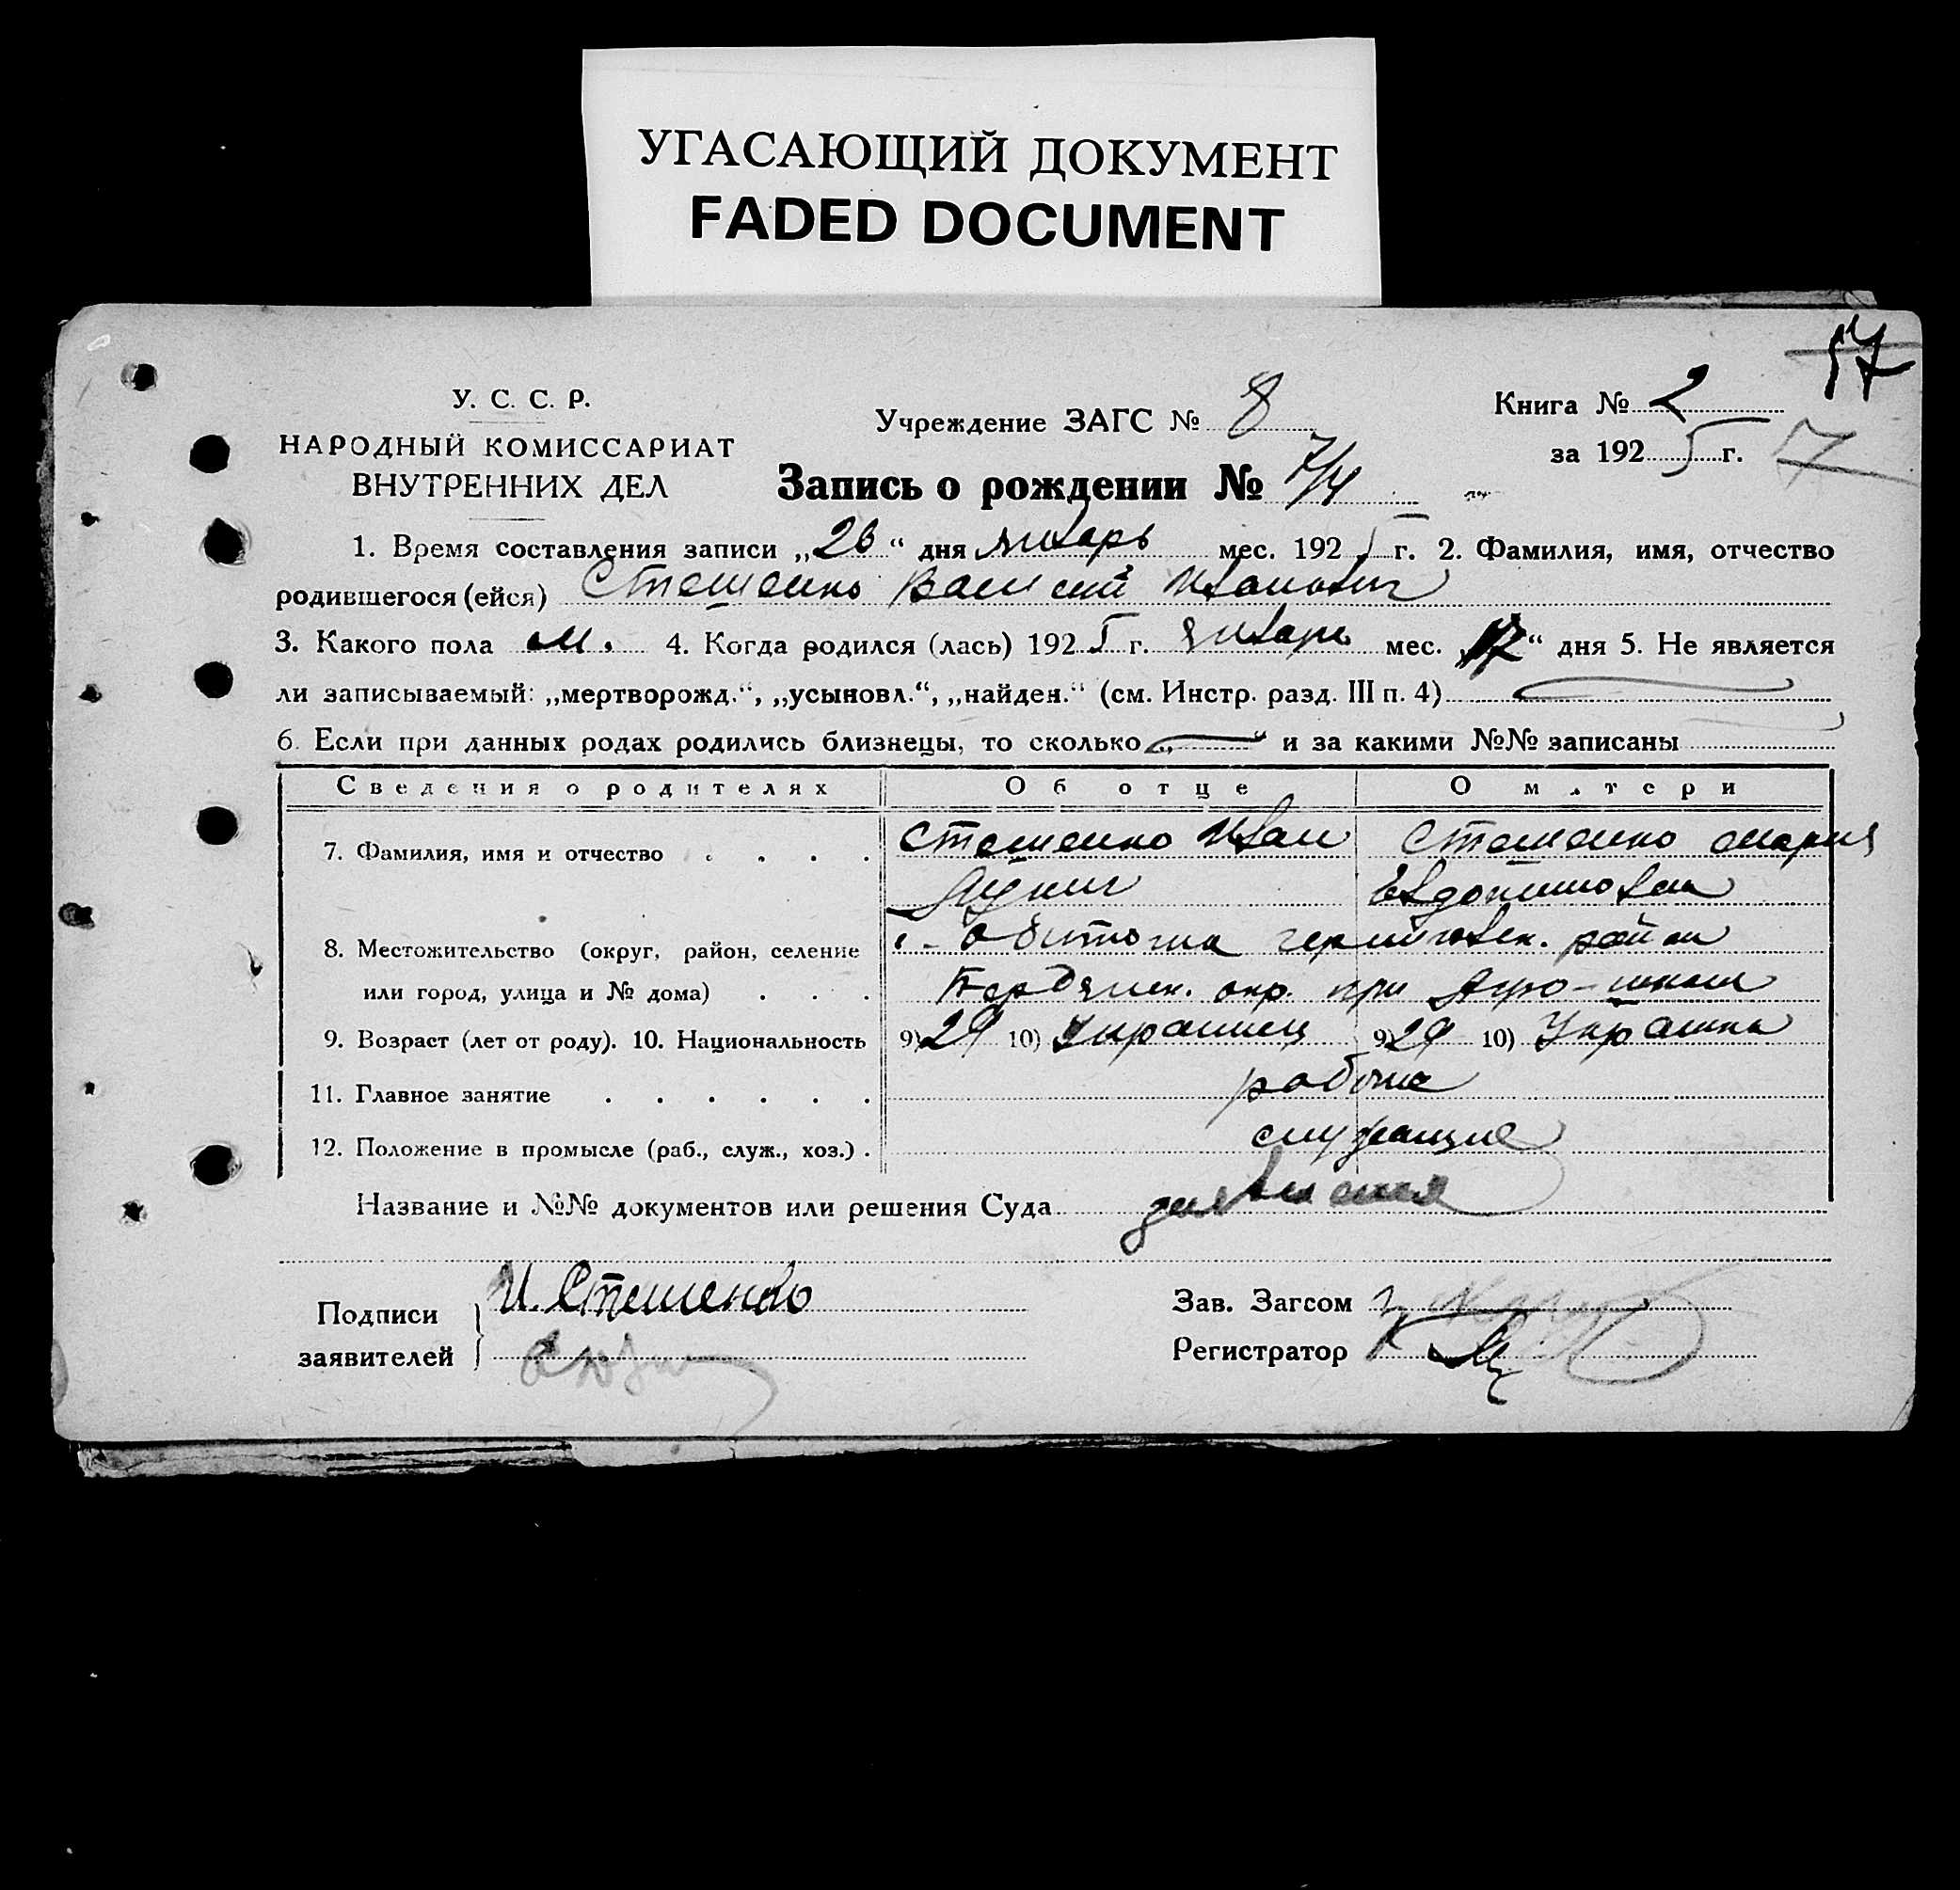 УГАСАЮЩИЙ ДОКУМЕНТ
FADED DOCUMENT
17
У. С. С. Р.
НАРОДНЫЙ КОМИССАРИАТ
ВНУТРЕННИХ ДЕЛ
Учреждение ЗАГС № 8
Книга № 2
за 1925 г. 7
Запись о рождении № 7/4
1. Время составления записи „26“ дня январь мес. 1925 г. 2. Фамилия, имя, отчество
родившегося (ейся) Стешенко Василий Иванович
3. Какого пола м. 4. Когда родился (лась) 1925 г. январь мес. „“ дня 5. Не является
ли записываемый: „мертворожд.“, „усыновл.“, „найден.“ (см. Инстр. разд. III п. 4)
6. Если при данных родах родились близнецы, то сколько „“ и за какими №№ записаны
Сведения о родителях Об отце О матери
7. Фамилия, имя и отчество . . . . Стешенко Иван Стешенко Мария
Евдокимовна
8. Местожительство (округ, район, селение Обиточна черниговск. район
или город, улица и № дома) . . . Бердянск. окр. при Агро-школе
9. Возраст (лет от роду). 10. Национальность 9) 29 10) Украинец 9) 29 10) Украинка
11. Главное занятие . . . . . .
12. Положение в промысле (раб., служ., хоз.) . служащие
Название и №№ документов или решения Суда заявления
Подписи заявителей И. Стешенко
Зав. Загсом
Регистратор